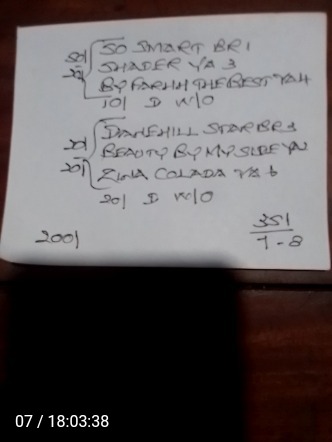 50/ SO SMART BR1
SHADER YA 3
20/ BY FARHH THE BEST YAH
10/ D W/O
50/ DANEHILL STAR BR3
BEAUTY BY MY SIDE YA
20/ ZINA COLADA YA 6
20/ D W/O
200/
351
7-8
07 / 18:03:38